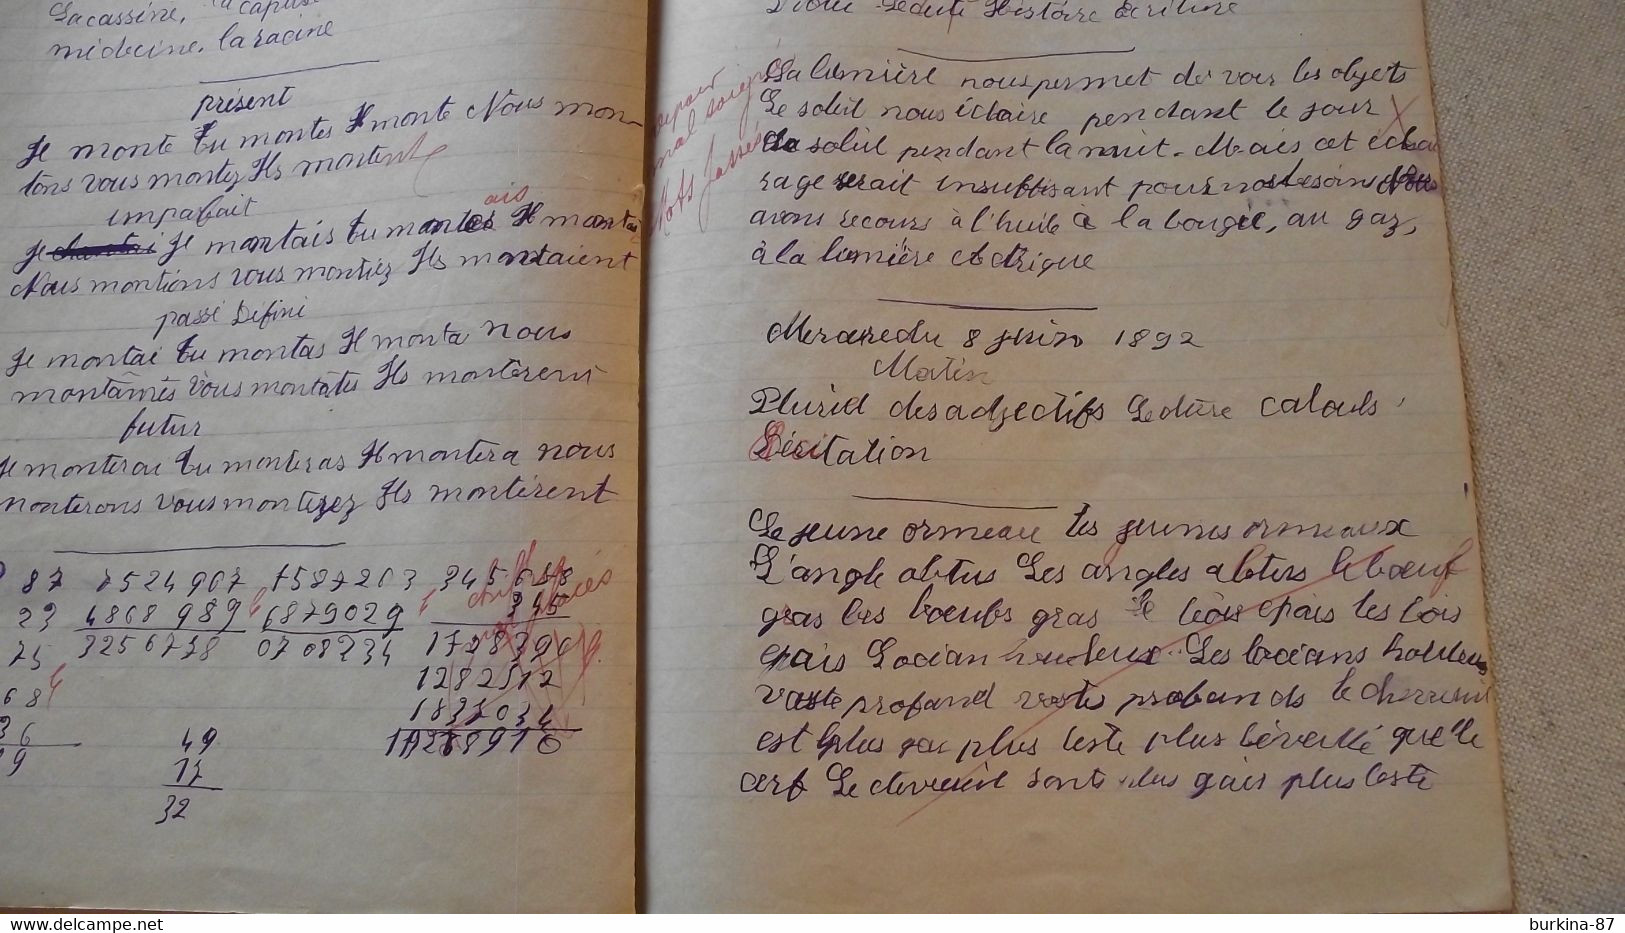 Lacassine, la capuse
médecine. la racine
présent
Je monte tu montes Il monte Nous mon-
tons vous montez Ils montent
imparfait
Je chantai Je montais tu montes ais Il montai
Nous montions vous montiez Ils montaient
passé Défini
Je montai tu montas Il monta nous
montâmes vous montâtes Ils montèrent
futur
Je monterai tu monteras Il montera nous
monterons vous monterez Ils montèrent
87 7524907 7587203 345678
23 4868989 6879029 345
75 3256778 0708234 1728390
68 1282512
36 1837034
9
49
17
32
chiffres
mal placés
Dictée Lecture Histoire écriture
devoir
mal soigné
Mots passés
La lumière nous permet de voir les objets
Le soleil nous éclaire pendant le jour
La soleil pendant la nuit. Mais cet éclai
rage serait insuffisant pour nos besoins Nous
avons recours à l'huile à la bougie, au gaz,
à la lumière électrique
Mercredu 8 juin 1892
Matin
Pluriel des adjectifs Lecture calculs,
Récitation
Le jeune ormeau les jeunes ormeaux
L'angle obtus Les angles obtus le bœuf
gras les bœufs gras Le bois épais les bois
épais Locéan houleux Les locéans houleux
vaste profond vastes profonds le chevreuil
est plus gai plus leste plus éveillé que le
cerf Le chevreuil sont plus gais plus leste
delcampe.net
burkina-87